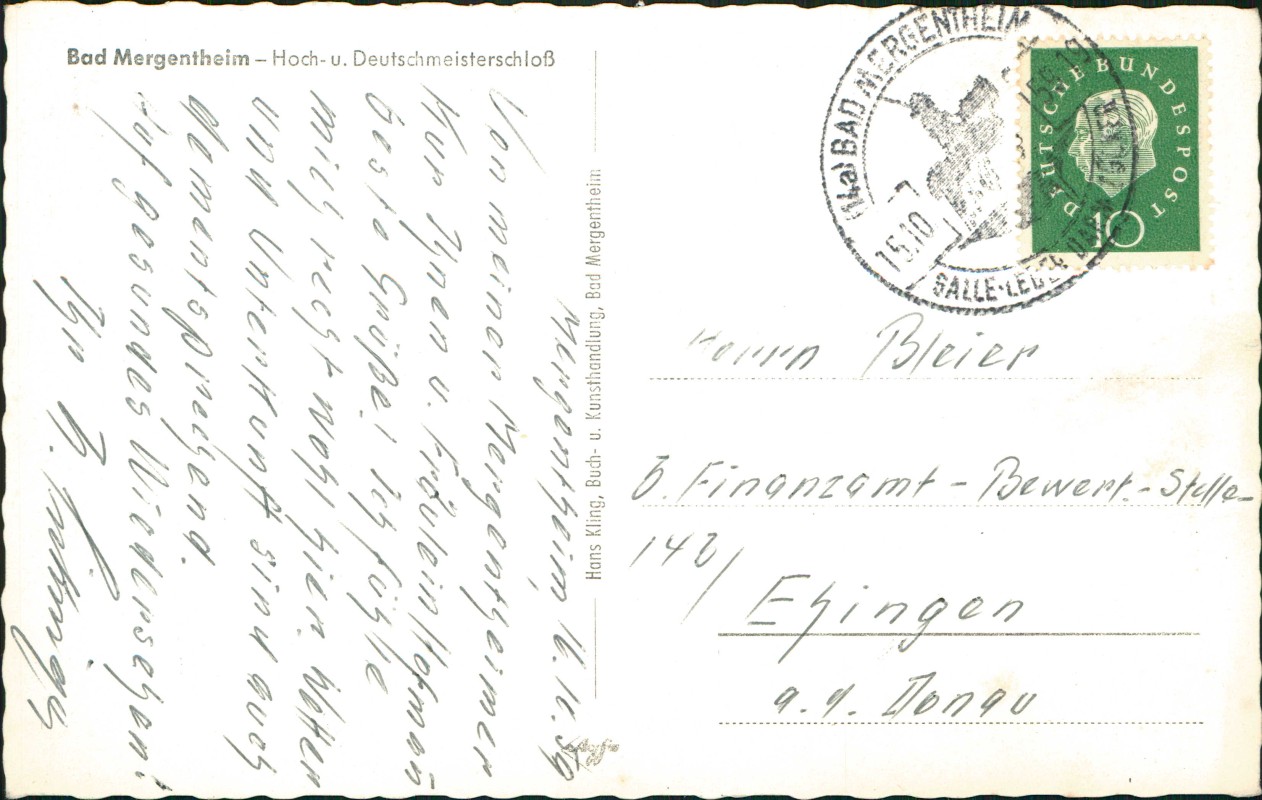 Bad Mergentheim – Hoch- u. Deutschmeisterschloß
Mergentheim,
Von meiner Mergentheimer
Kur Ihnen u. Fräulein Hofmann
beste Grüße! Ich fühle
mich recht wohl hier. Wetter
und Unterkunft sind auch
dementsprechend.
Auf gesundes Wiedersehen!
Ihr
Hans Kling, Buch- u. Kunsthandlung, Bad Mergentheim
BAD MERGENTHEIM
15.10
GALLE-LEBER-DARM
DEUTSCHE BUNDESPOST
10
Herrn Bleier
Finanzamt – Bewert.-Stelle
Ehingen
a.d. Donau
Agfa